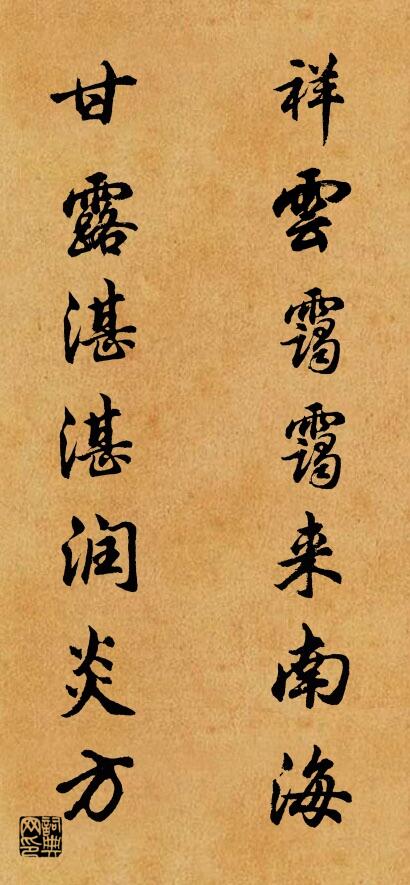 祥雲靄靄来南海
甘露湛湛润炎方
詞典网印